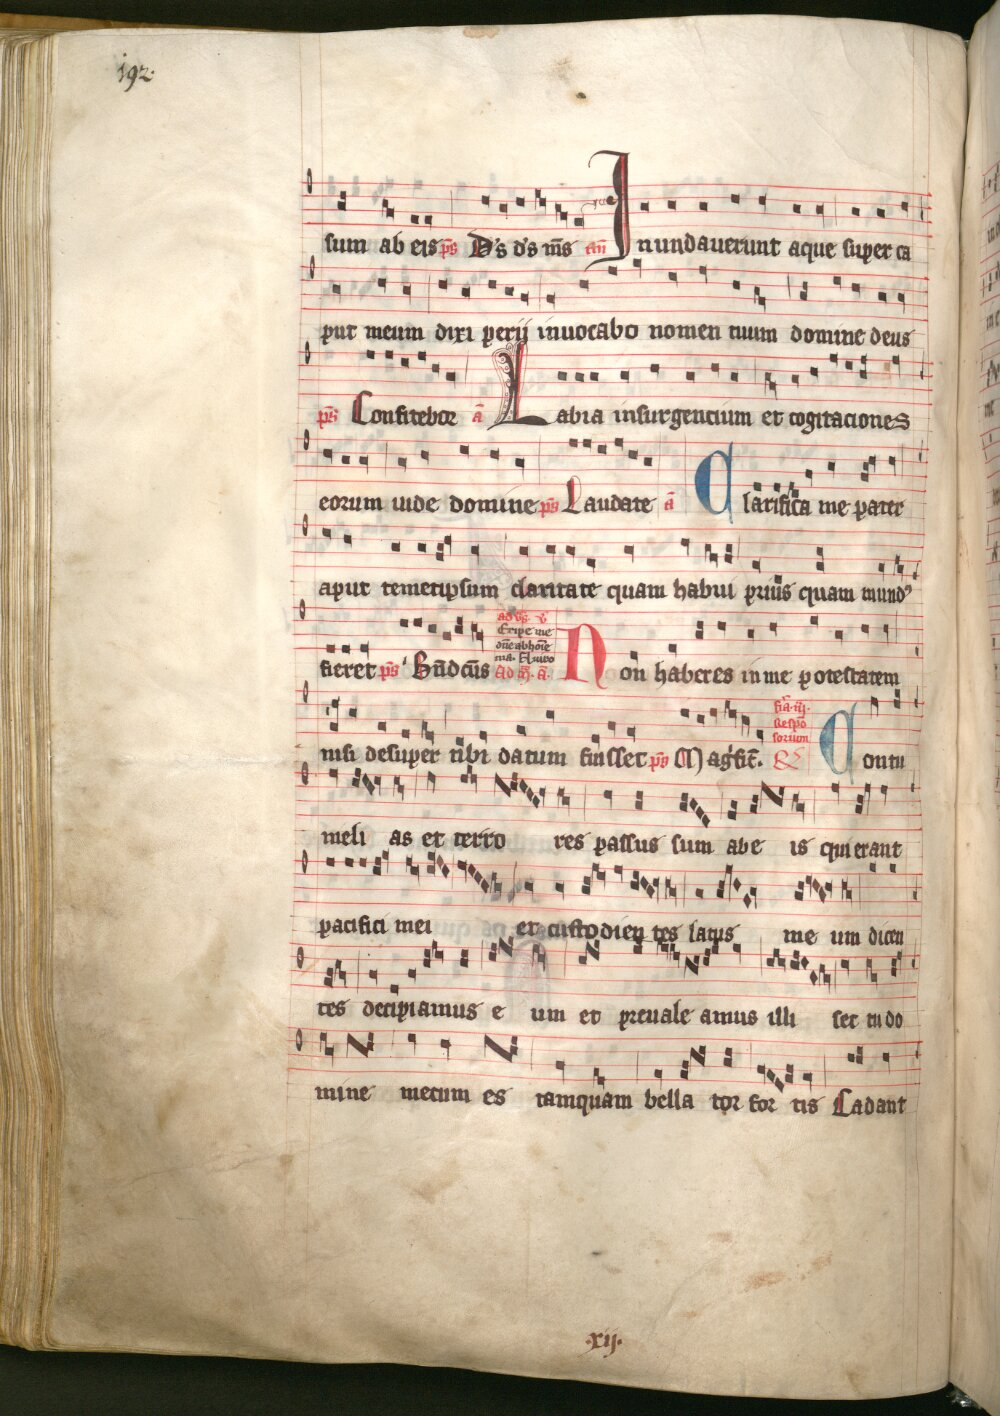 192.
sum ab eis p̄s D's d's m̄s an̄ Inundauerunt aque super ca
put meum dixi perij inuocabo nomen tuum domine deus
p̄s Confitebor ā Labia insurgentium et cogitaciones
eorum uide domine p̄s Laudate ā Clarifica me pater
aput temetipsum claritate quam habui prius quam mund9
fieret p̄s Bn̄dcūs
Eripe me
dn̄e ab hoīe
ma. A uiro
Non haberes in me potestatem
nisi desuper tibi datum fuisset p̄s Magn̄fic̄.
Respon
sorium
Contu
meli as et terro res passus sum abe is qui erant
pacifici mei et custodien tes latus me um dicen
tes decipiamus e um et preuale amus illi set tu do
mine mecum es tamquam bella tor for tis Cadant
.xij.